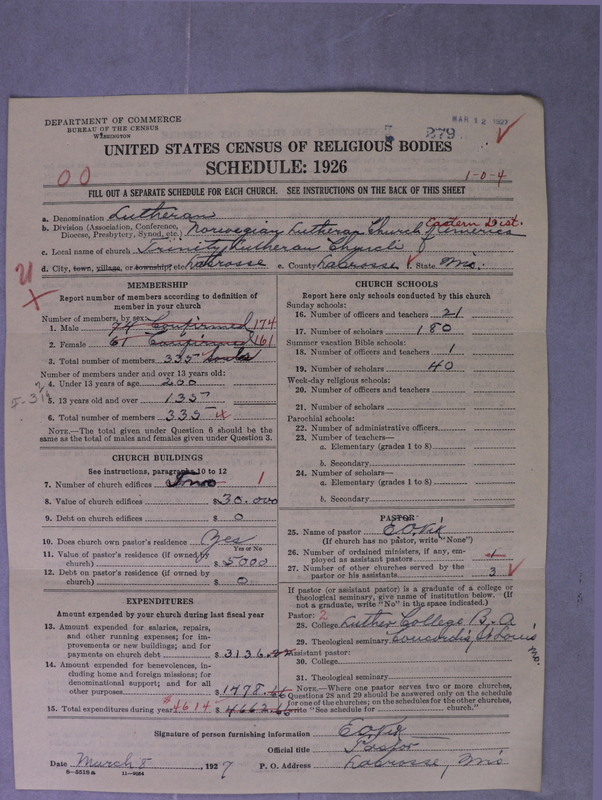 DEPARTMENT OF COMMERCE
BUREAU OF THE CENSUS
WASHINGTON
MAR 12 1927
279
UNITED STATES CENSUS OF RELIGIOUS BODIES
SCHEDULE: 1926
00
1-0-4
FILL OUT A SEPARATE SCHEDULE FOR EACH CHURCH. SEE INSTRUCTIONS ON THE BACK OF THIS SHEET
a. Denomination Lutheran
Eastern Dist.
b. Division (Association, Conference, Diocese, Presbytery, Synod, etc.) Norwegian Lutheran Church of America
c. Local name of church Trinity Lutheran Church
d. City, town, village, or township, etc. LaCrosse e. County LaCrosse State
MEMBERSHIP
Report number of members according to definition of
member in your church
Number of members, by sex:
1. Male 74 Confirmed 174
2. Female 61 Confirmed 161
3. Total number of members 335 souls
Number of members under and over 13 years old:
4. Under 13 years of age 200
5. 13 years old and over 135
6. Total number of members 335
NOTE.—The total given under Question 6 should be the
same as the total of males and females given under Question 3.
CHURCH BUILDINGS
See instructions, paragraphs 10 to 12
7. Number of church edifices Two 1
8. Value of church edifices $30.000
9. Debt on church edifices $ 0
10. Does church own pastor's residence? Yes
Yes or No
11. Value of pastor's residence (if owned by
church) $5000
12. Debt on pastor's residence (if owned by
church) $ 0
EXPENDITURES
Amount expended by your church during last fiscal year
13. Amount expended for salaries, repairs,
and other running expenses; for im-
provements or new buildings; and for
payments on church debt $3136.
14. Amount expended for benevolences, in-
cluding home and foreign missions; for
denominational support; and for all
other purposes $1478.66
15. Total expenditures during year $4614 $
CHURCH SCHOOLS
Report here only schools conducted by this church
Sunday schools:
16. Number of officers and teachers 21
17. Number of scholars 180
Summer vacation Bible schools:
18. Number of officers and teachers 1
19. Number of scholars 40
Week-day religious schools:
20. Number of officers and teachers
21. Number of scholars
Parochial schools:
22. Number of administrative officers
23. Number of teachers—
a. Elementary (grades 1 to 8)
b. Secondary
24. Number of scholars—
a. Elementary (grades 1 to 8)
b. Secondary
PASTOR
25. Name of pastor
(If church has no pastor, write "None")
26. Number of ordained ministers, if any, em-
ployed as assistant pastors
27. Number of other churches served by the
pastor or his assistants 3
If pastor (or assistant pastor) is a graduate of a college or
theological seminary, give name of institution below. (If
not a graduate, write "No" in the space indicated.)
Pastor: 2
28. College Luther College B.A.
29. Theological seminary Concordia, St Louis Mo.
Assistant pastor:
30. College
31. Theological seminary
NOTE.—Where one pastor serves two or more churches,
Questions 28 and 29 should be answered only on the schedule
for one of the churches; on the schedules for the other churches,
write "See schedule for church."
Signature of person furnishing information
Official title Pastor
Date March 8, 1927 P. O. Address LaCrosse,
8-5518a 11-9054